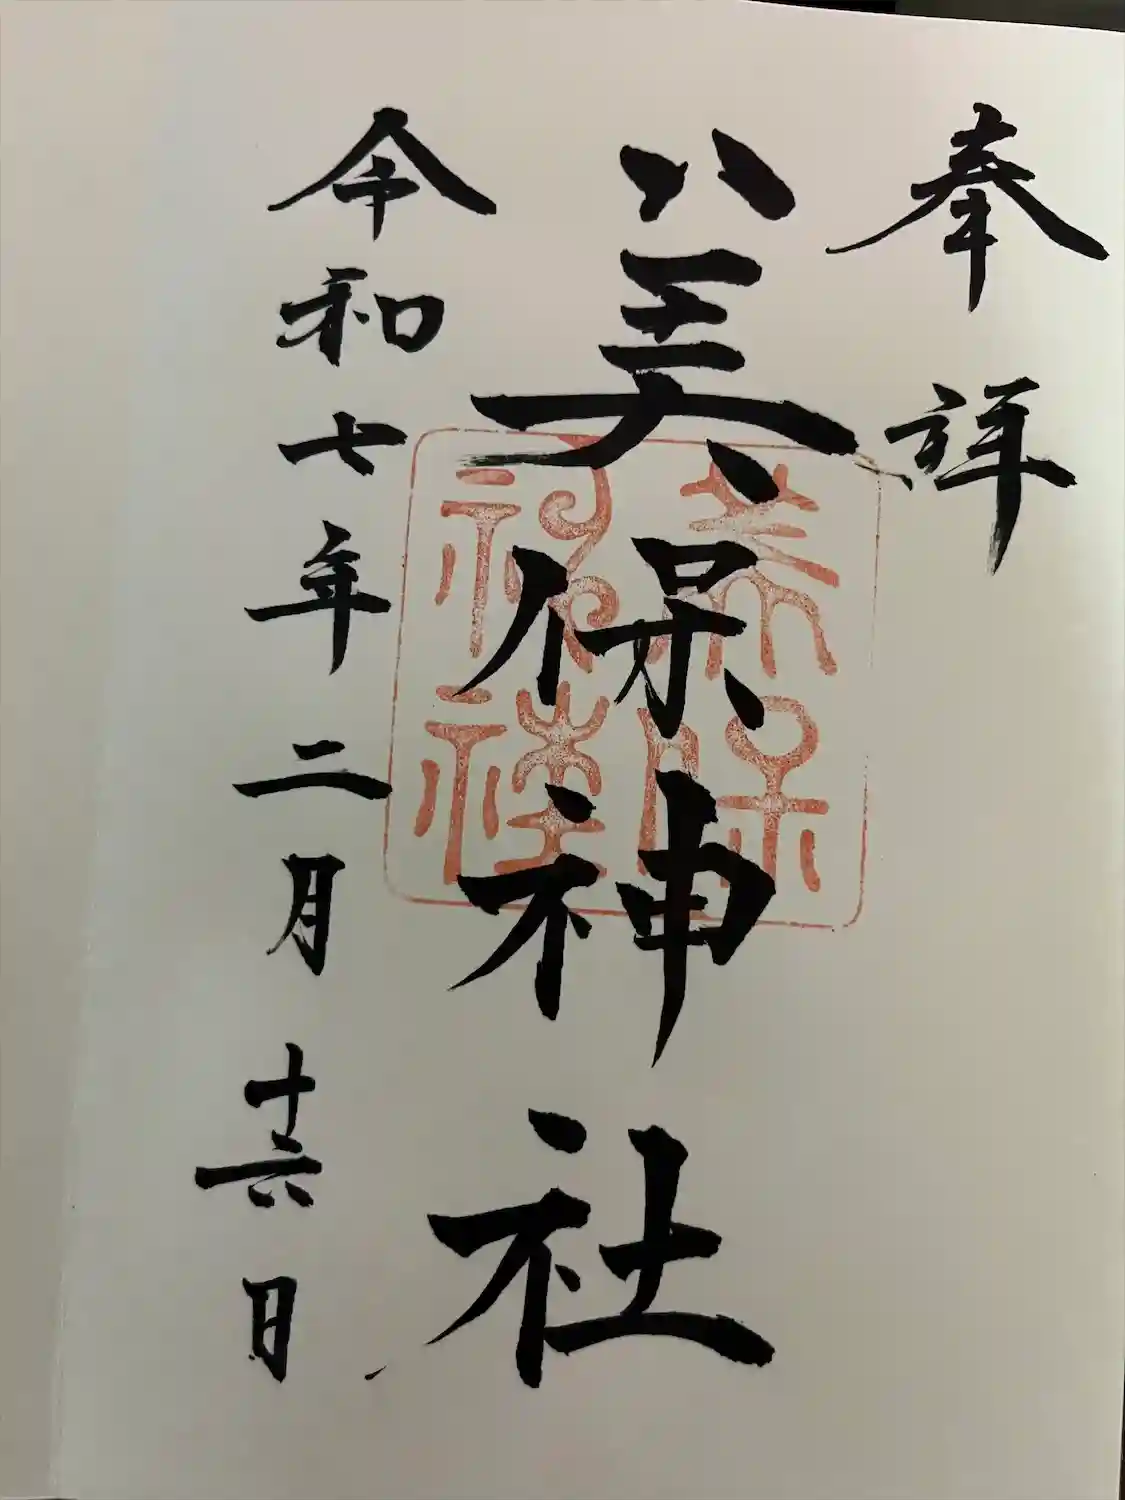 奉拝
美保神社
令和七年二月十六日
美保神社